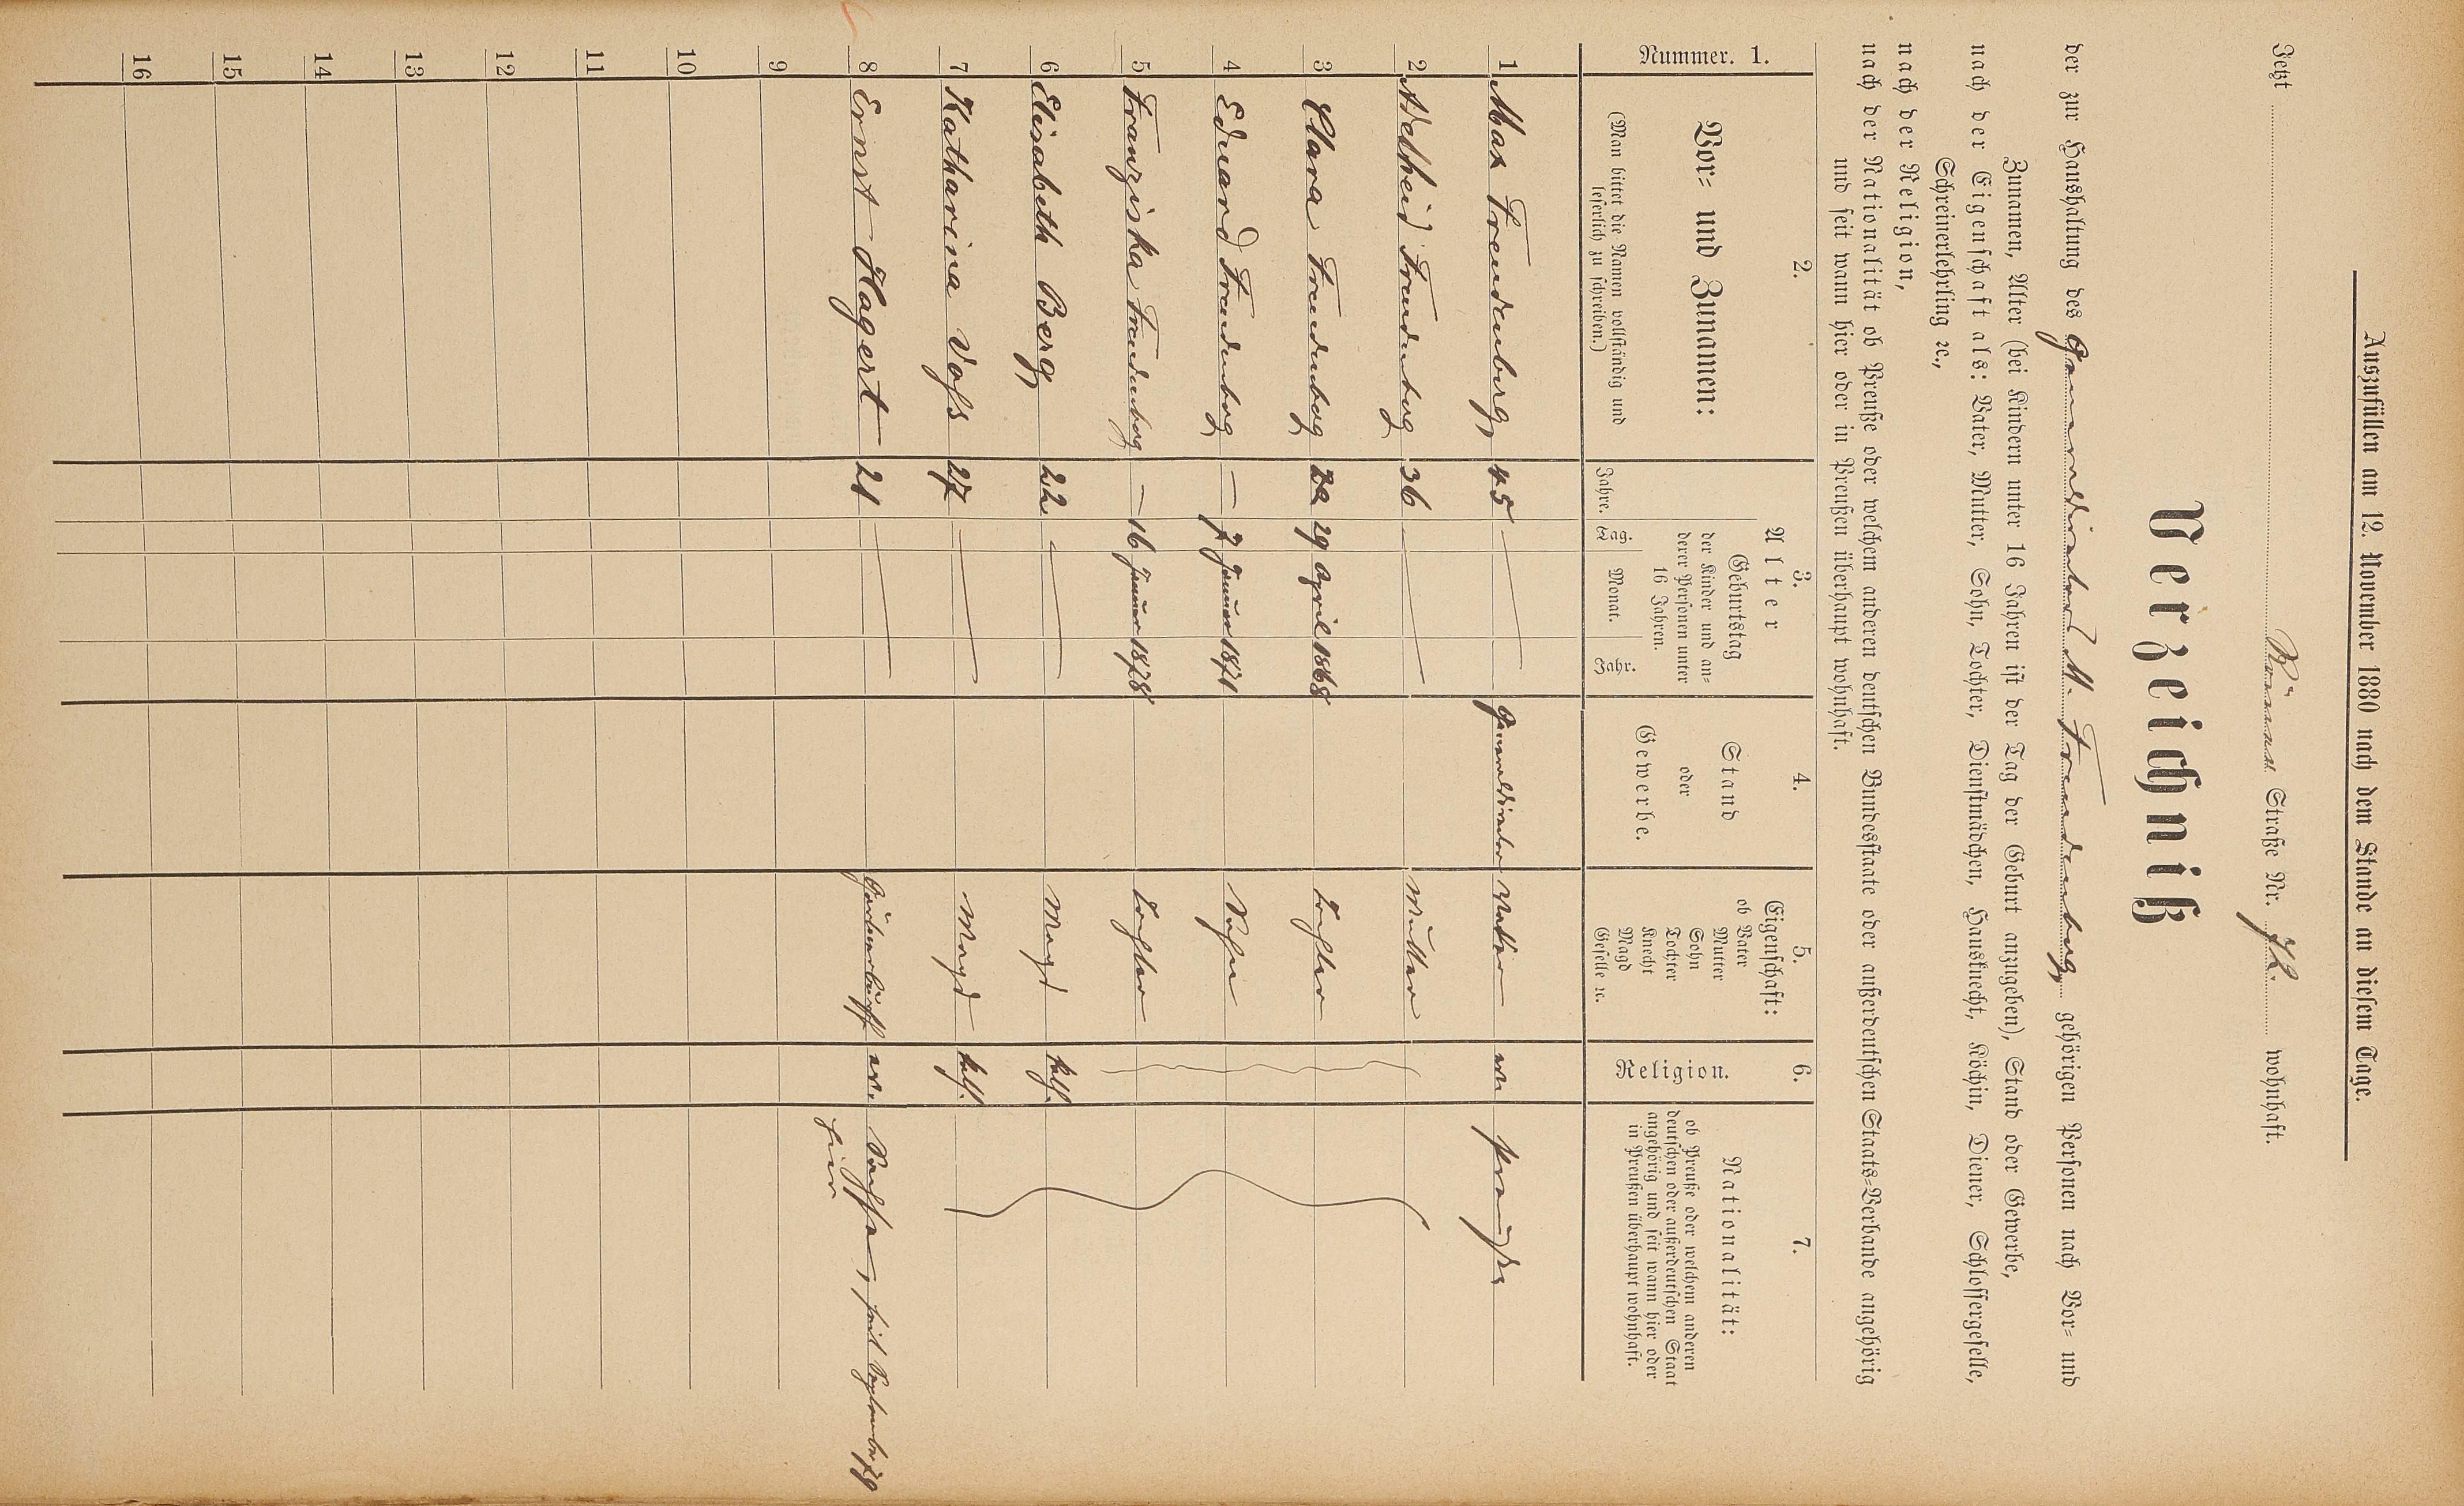 Auszufüllen am 12. November 1880 nach dem Stande an diesem Tage.
Jetzt Kölner Straße Nr. 76. wohnhaft.
Verzeichniß
der zur Haushaltung des Generaldirector M. Freudenberg gehörigen Personen nach Vor- und
Zunamen, Alter (bei Kindern unter 16 Jahren ist der Tag der Geburt anzugeben), Stand oder Gewerbe,
nach der Eigenschaft als: Vater, Mutter, Sohn, Tochter, Dienstmädchen, Hausknecht, Köchin, Diener, Schlossergeselle,
Schreinerlehrling ꝛc.,
nach der Religion,
nach der Nationalität ob Preuße oder welchem anderen deutschen Bundesstaate oder außerdeutschen Staats-Verbande angehörig
und seit wann hier oder in Preußen überhaupt wohnhaft.
Nummer. 1.
2.
Vor- und Zunamen:
(Man bittet die Namen vollständig und
leserlich zu schreiben.)
3.
Alter
Geburtstag
der Kinder und an-
derer Personen unter
16 Jahren.
Jahre. Tag. Monat. Jahr.
4.
Stand
oder
Gewerbe.
5.
Eigenschaft:
ob Vater
Mutter
Sohn
Tochter
Knecht
Magd
Geselle ꝛc.
6.
Religion.
7.
Nationalität:
ob Preuße oder welchem anderen
deutschen oder außerdeutschen Staat
angehörig und seit wann hier oder
in Preußen überhaupt wohnhaft.
1 Max Freudenberg 45 Generaldirector Vater ev Preuße
2 Adelheid Freudenberg 36 Mutter
3 Clara Freudenberg 29 April 1868 Tochter
4 Eduard Freudenberg — 7 Januar 1871 Sohn
5 Franziska Freudenberg — 16 Januar 1878 Tochter
6 Elisabeth Berg 22 Magd kath.
7 Katharina Voss 27 Magd kath.
8 Ernst Hagert 21 ev. Sachsen, seit September 79
hier
9
10
11
12
13
14
15
16